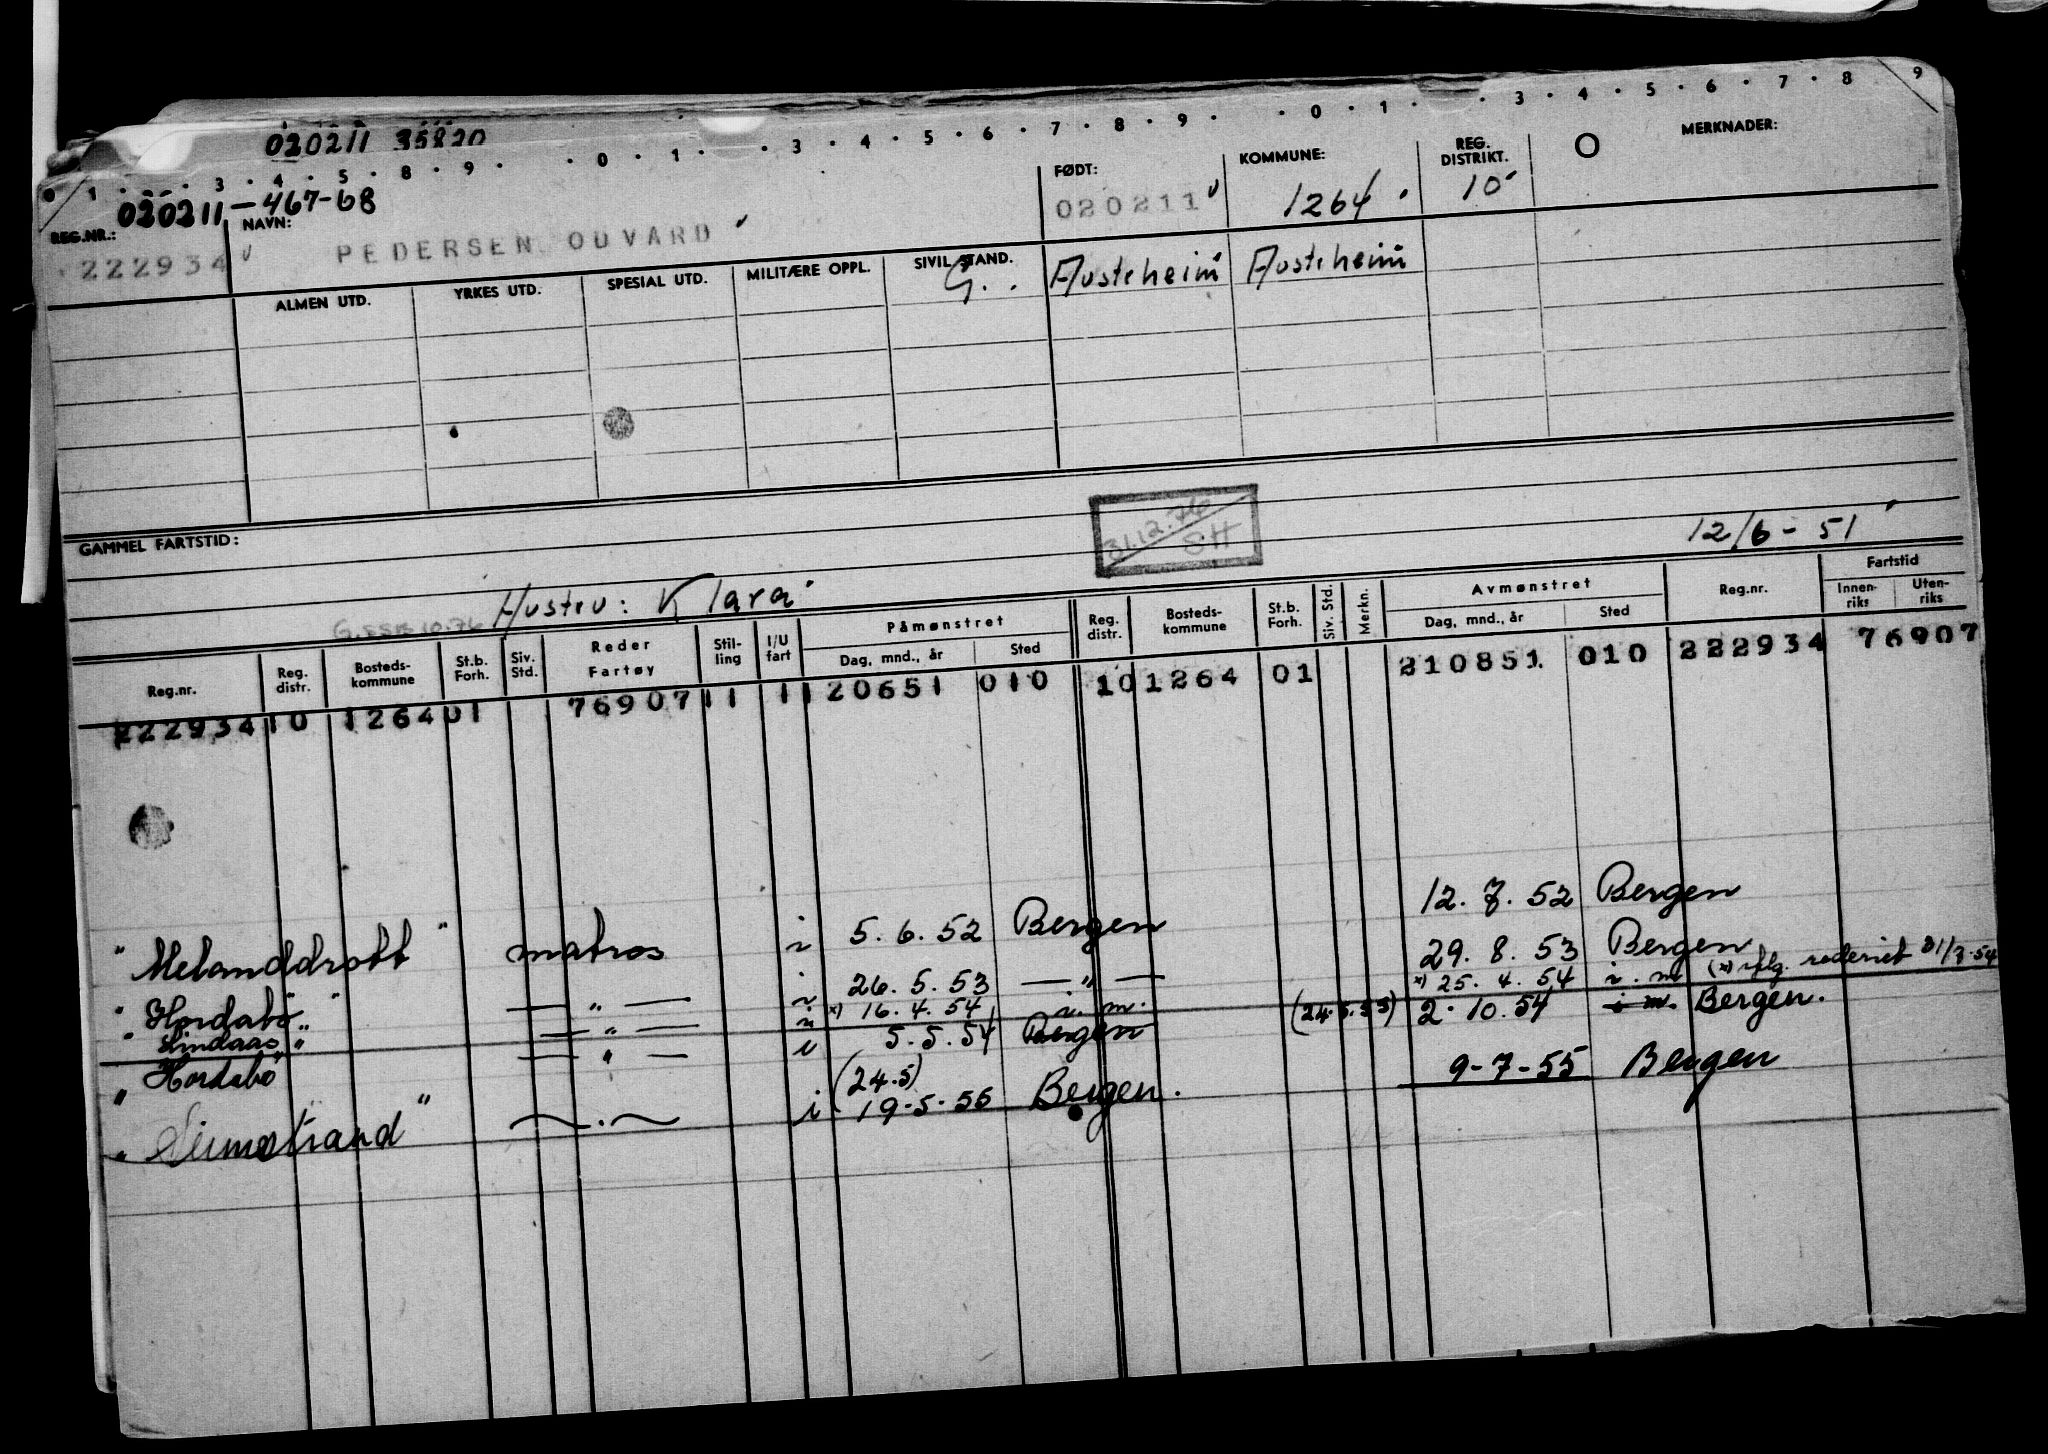 020211 35820
3 · 4 · 5 · 6 · 7 · 8 · 9 · · 0 · 1 · · 3 · 4 · 5 · 6 · 7 · 8 9
0 1 · · 3 · 4 · 5 · 8 · 9 · · 0 · 1 ·
020211-467-68
REG.NR.: NAVN: FØDT: KOMMUNE: REG. DISTRIKT. MERKNADER:
222934 PEDERSEN ODVARD 020211 1264 10
ALMEN UTD. YRKES UTD. SPESIAL UTD. MILITÆRE OPPL. SIVIL STAND.
G. Austrheim Austrheim
GAMMEL FARTSTID:
31.12.76
SH
12/6-51
Hustru: Klara
Reg.nr. Reg. distr. Bosteds-kommune St.b. Forh. Siv. Std. Reder Fartøy Stil-ling I/U fart Påmønstret Dag, mnd., år Sted Reg. distr. Bosteds-kommune St.b. Forh. Siv. Std. Merkn. Avmønstret Dag, mnd., år Sted Reg.nr. Fartstid Innen-riks Uten-riks
222934 10 1264 01 76907 11 1 120651 010 10 1264 01 210851 010 222934 76907
"Melanddrott" matros i 5.6.52 Bergen 12.7.52 Bergen
"Hordabø" — " — i 26.5.53 — " — 29.8.53 Bergen
"Lindaas" — " — i x) 16.4.54 i.m. x) 25.4.54 i.m.
"Hordabø" — " — i 5.5.54 Bergen (24.5.55) 2.10.54 i m. Bergen.
(24.5)
i 19-5-55 Bergen. 9-7-55 Bergen